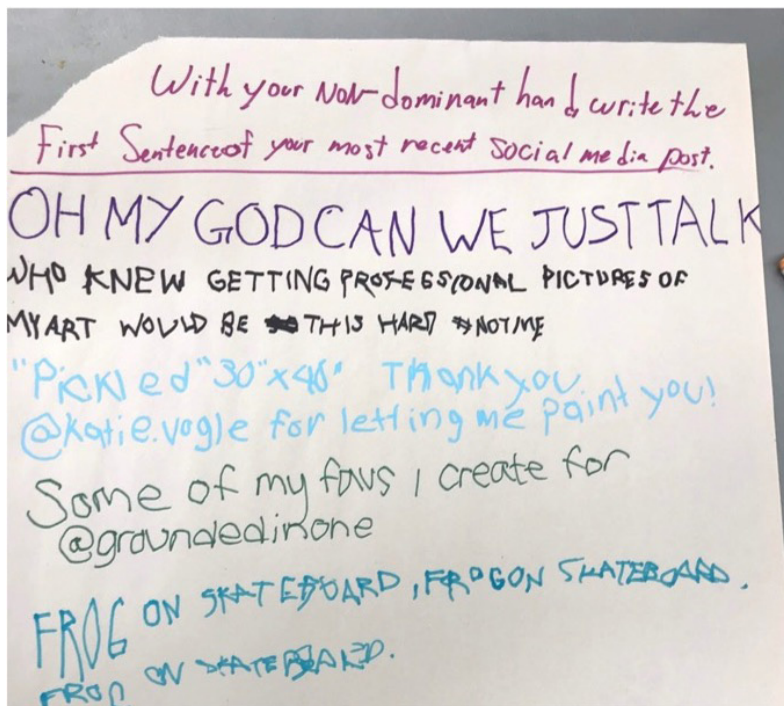 With your NON-dominant hand, write the
First Sentence of your most recent social media post.
OH MY GOD CAN WE JUST TALK
WHO KNEW GETTING PROFESSIONAL PICTURES OF
MY ART WOULD BE THIS HARD #NOTME
"Pickled" 30"x48" Thank you
@katie.vogle for letting me paint you!
Some of my favs I create for
@groundedinone
FROG ON SKATEBOARD, FROG ON SKATEBOARD,
FROG ON SKATEBOARD.